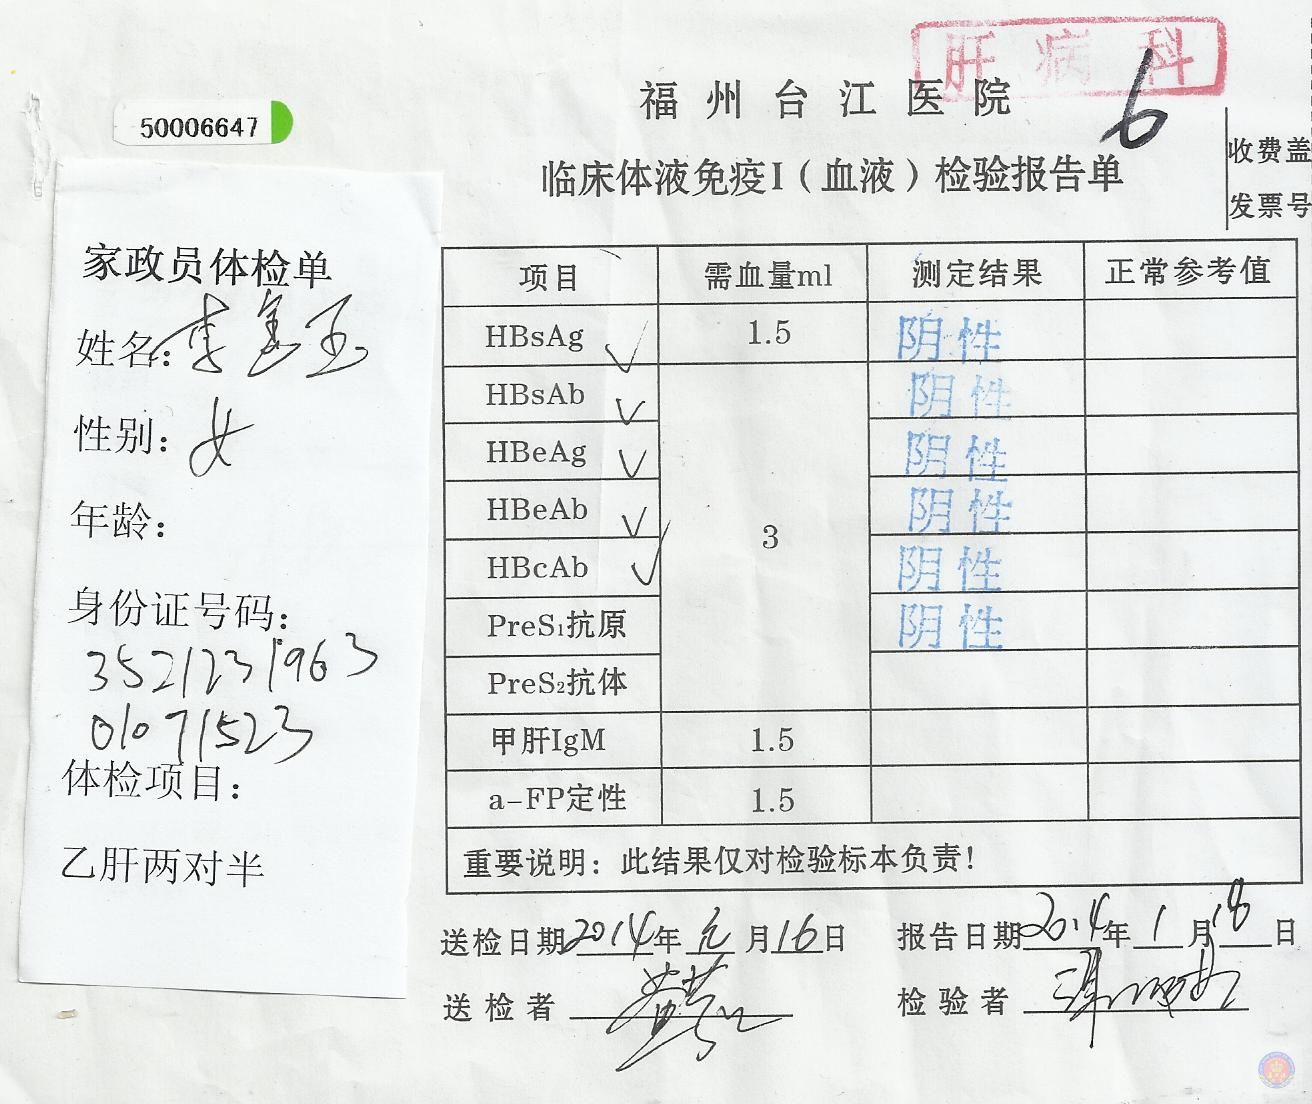 肝病科
福州台江医院
6
50006647
临床体液免疫I（血液）检验报告单
收费盖
发票号
家政员体检单
姓名：李美玉
性别：女
年龄：
身份证号码：
3521231963
01071523
体检项目：
乙肝两对半
项目 需血量ml 测定结果 正常参考值
HBsAg ✓ 1.5 阴性
HBsAb ✓ 阴性
HBeAg ✓ 阴性
HBeAb ✓ 3 阴性
HBcAb ✓ 阴性
PreS₁抗原 阴性
PreS₂抗体
甲肝IgM 1.5
a-FP定性 1.5
重要说明：此结果仅对检验标本负责！
送检日期2014年元月16日 报告日期2014年1月18日
送检者 检验者